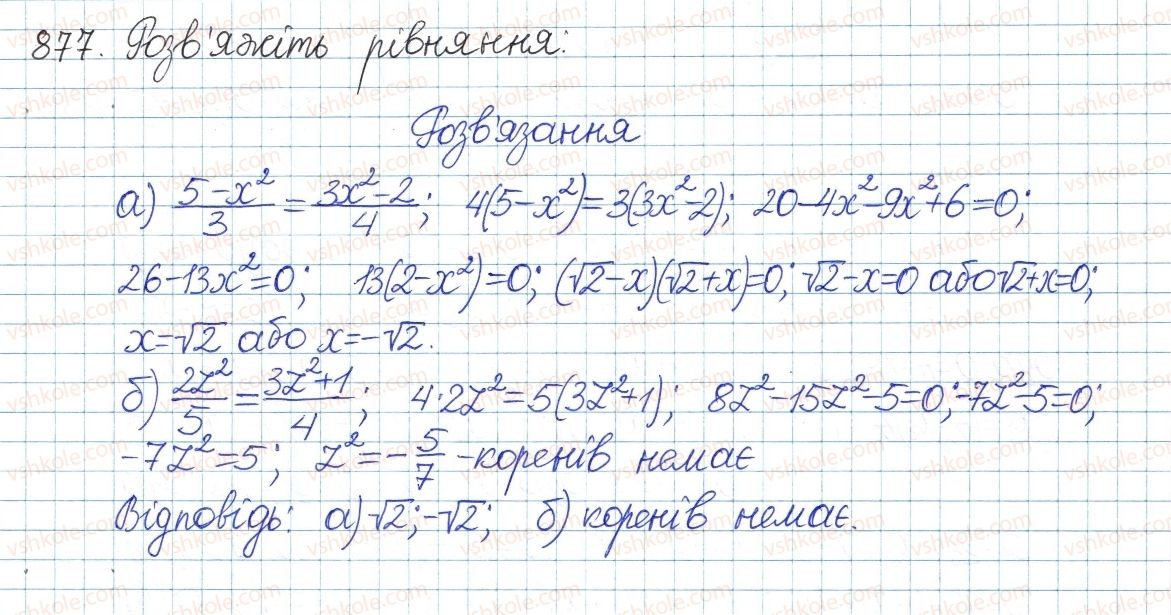 877. Розв'яжіть рівняння:
Розв'язання
а) (5-x²)/3 = (3x²-2)/4; 4(5-x²)=3(3x²-2); 20-4x²-9x²+6=0;
26-13x²=0; 13(2-x²)=0; (√2-x)(√2+x)=0; √2-x=0 або √2+x=0;
x=√2 або x=-√2.
б) 2z²/5 = (3z²+1)/4; 4·2z²=5(3z²+1); 8z²-15z²-5=0; -7z²-5=0;
-7z²=5; z²=-5/7 -коренів немає
Відповідь: а) √2; -√2; б) коренів немає.